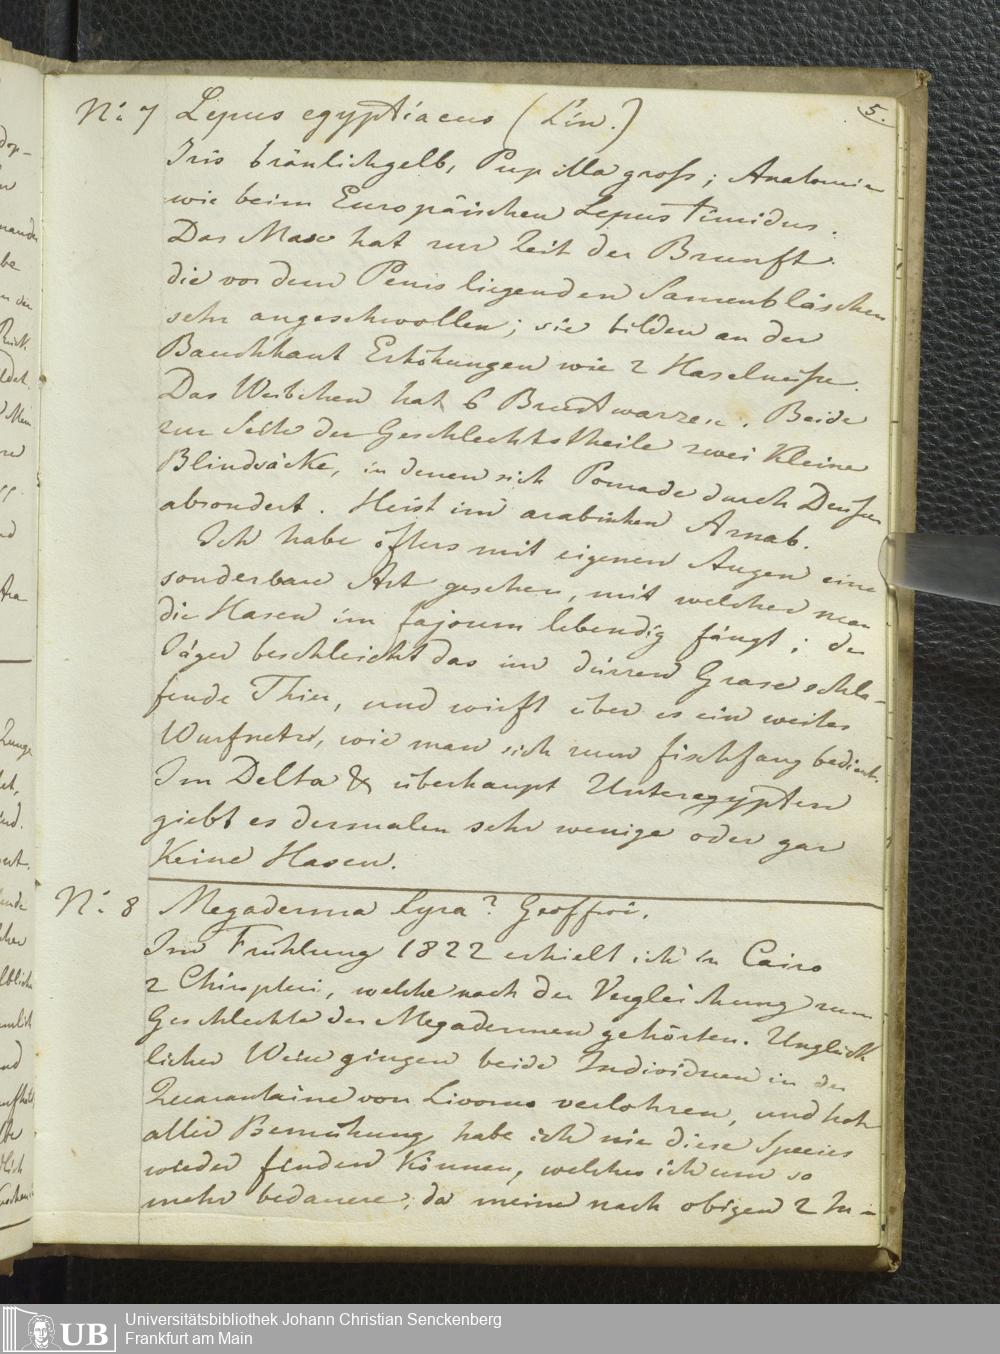 5.
N: 7 Lepus egyptiacus (Lin.)
Iris bräunlichgelb, Pupilla gross; Anatomie
wie beim Europäischen Lepus timidus.
Das Masc hat zur Zeit der Brunft
die vor dem Penis liegenden Samenbläschen
sehr angeschwollen; sie bilden an der
Bauchhaut Erhöhungen wie 2 Haselnüsse.
Das Weibchen hat 6 Brustwarzen. Beide
zur Seite der Geschlechtstheile zwei kleine
Blindsäcke, in denen sich Pomade durch Deusen
absondert. Heist im arabischen Arnab.
Ich habe öfters mit eigenen Augen eine
sonderbare Art gesehen, mit welcher man
die Hasen im fajoum lebendig fängt; der
Jäger beschleicht das im dürren Grase schla-
fende Thier, und wirft über es ein weites
Wurfnetz, wie man sich zum fischfang bedient.
Im Delta & überhaupt Unteregypten
giebt es dermalen sehr wenige oder gar
keine Hasen.
N: 8 Megaderma lyra? Geoffroi.
Im Frühlung 1822 erhielt ich in Cairo
2 Chiropteri, welche nach der Vergleichung zum
Geschlechte der Megadermen gehörten. Unglück
licher Weise gingen beide Individuen in der
Quarantaine von Livorno verlohren, und troh
aller Bemühung habe ich nie diese Species
wieder finden können, welches ich um so
mehr bedauere, da meine nach obigen 2 In-
UB
Universitätsbibliothek Johann Christian Senckenberg
Frankfurt am Main